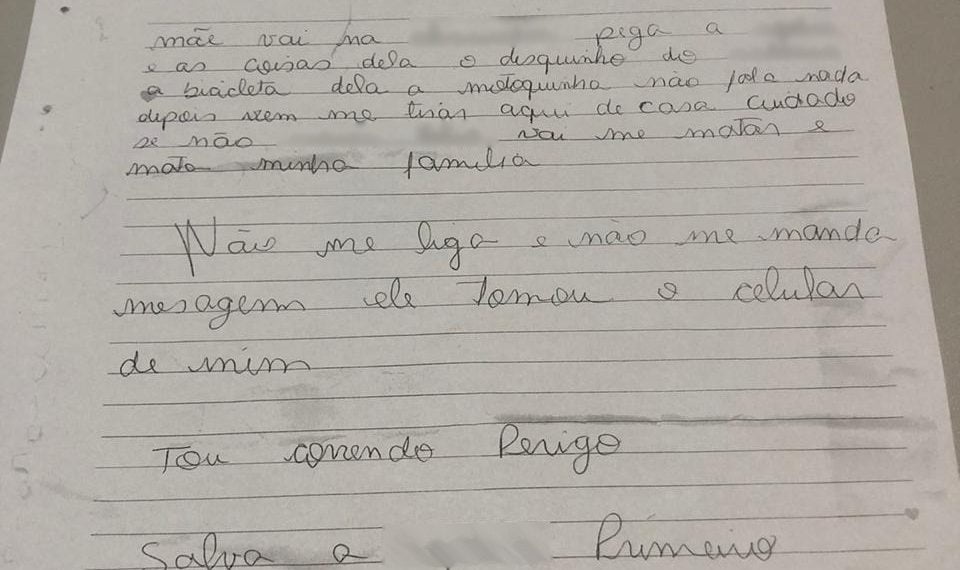 mãe vai na piga a
e as coisas dela o disquinho do
a bicicleta dela a motoquinha não fala nada
depois vem me tirar aqui de casa cuidado
se não vai me matar e
mata minha familia
Não me liga e não me manda
mesagem ele tomou o celular
de mim
Tou correndo Perigo
Salva a Primeiro